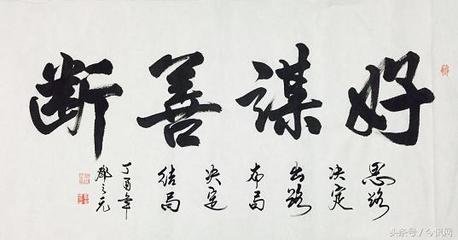 好謀善断
思路
决定
出路
布局
决定
结局
丁酉年
头条号 /